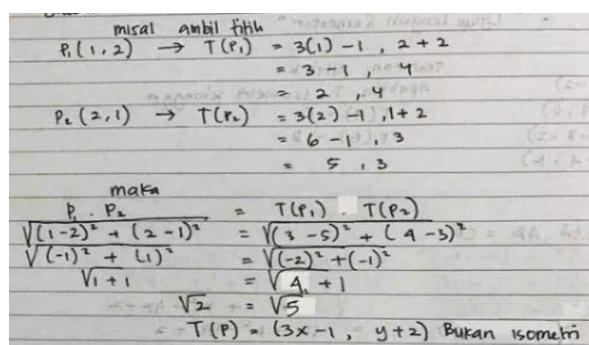 misal ambil titik
P₁(1,2) → T(P₁) = 3(1)-1 , 2+2
= 3-1 , 4
= 2 , 4
P₂(2,1) → T(P₂) = 3(2)-1 , 1+2
= 6-1 , 3
= 5 , 3
maka
P₁ . P₂ = T(P₁) . T(P₂)
√(1-2)² + (2-1)² = √(3-5)² + (4-3)²
√(-1)² + (1)² = √(-2)² + (-1)²
√1+1 = √4+1
√2 = √5
T(P) = (3x-1, y+2) Bukan isometri